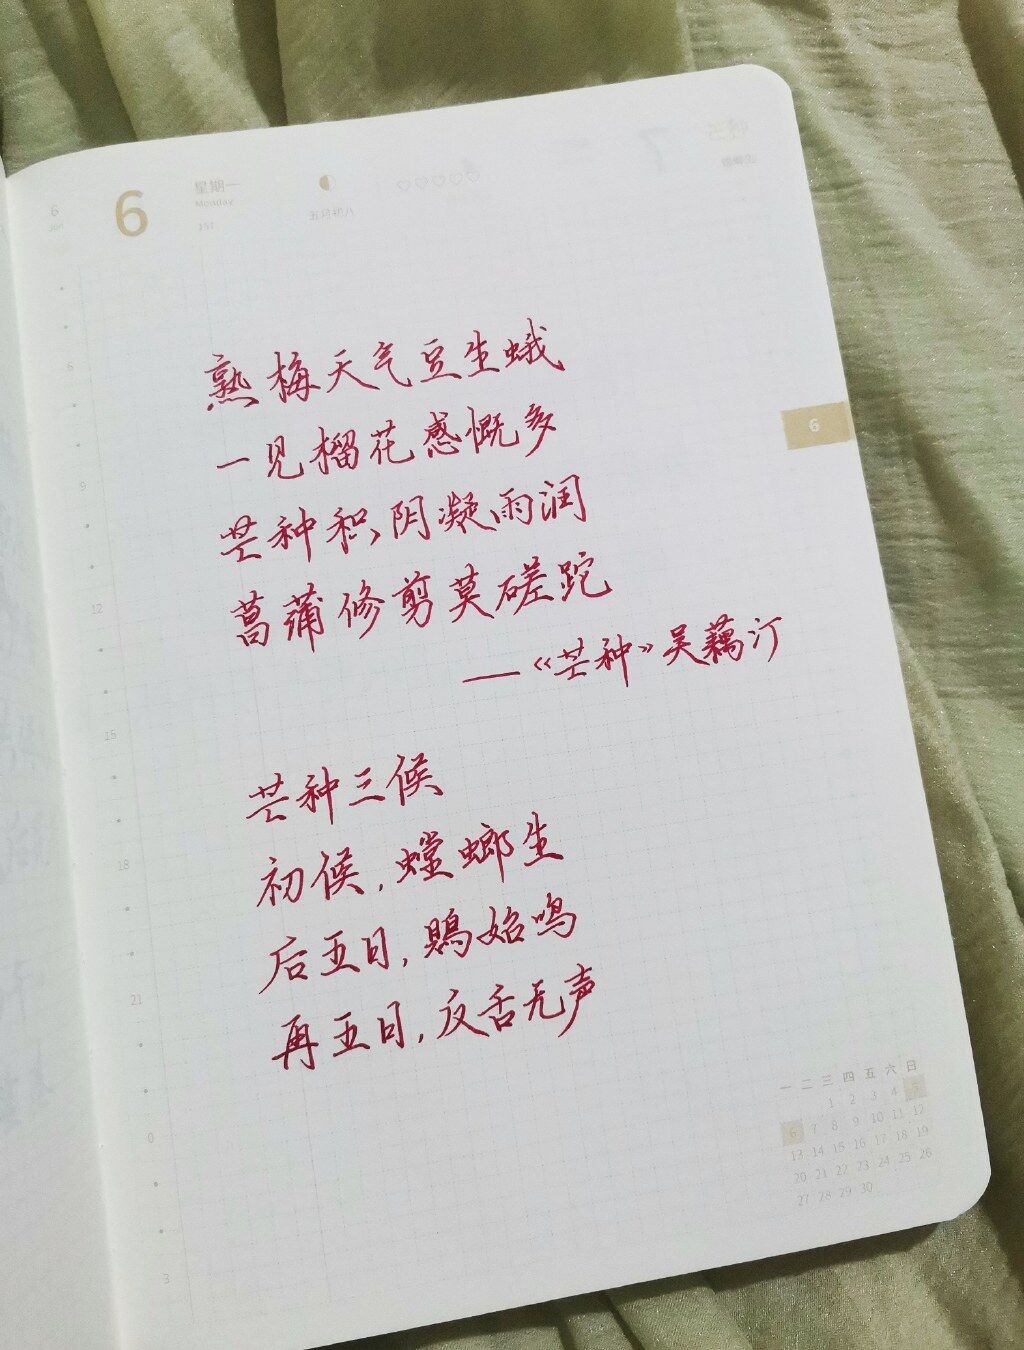 6
Jun
6
星期一
Monday
157
五月初八
熟梅天气豆生蛾
一见榴花感慨多
芒种积阴凝雨润
菖蒲修剪莫磋跎
——《芒种》吴藕汀
芒种三候
初候,螳螂生
后五日,鵙始鸣
再五日,反舌无声
6
9
12
15
18
21
0
3
6
一 二 三 四 五 六 日
1 2 3 4 5
6 7 8 9 10 11 12
13 14 15 16 17 18 19
20 21 22 23 24 25 26
27 28 29 30